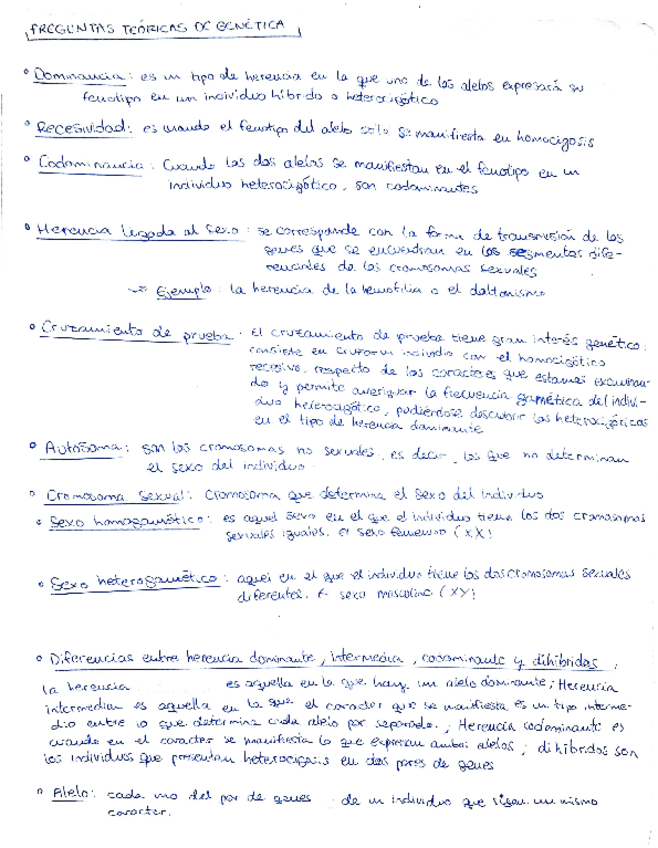 PREGUNTAS TEÓRICAS DE GENÉTICA
° Dominancia: es un tipo de herencia en la que uno de los alelos expresará su
fenotipo en un individuo híbrido o heterocigótico
° Recesividad: es cuando el fenotipo del alelo sólo se manifiesta en homocigosis
° Codominancia: Cuando los dos alelos se manifiestan en el fenotipo en un
individuo heterocigótico, son codominantes
° Herencia ligada al sexo: se corresponde con la forma de transmisión de los
genes que se encuentran en los segmentos dife-
renciales de los cromosomas sexuales
Ejemplo: la herencia de la hemofilia o el daltonismo
° Cruzamiento de prueba. El cruzamiento de prueba tiene gran interés genético:
consiste en cruzar un individuo con el homocigótico
recesivo, respecto de los caracteres que estamos examinan-
do y permite averiguar la frecuencia gamética del indivi-
duo heterocigótico, pudiéndose descubrir los heterocigóticos
en el tipo de herencia dominante
° Autosoma: son los cromosomas no sexuales, es decir, los que no determinan
el sexo del individuo.
° Cromosoma sexual: Cromosoma que determina el sexo del individuo
° Sexo homogamético: es aquel sexo en el que el individuo tiene los dos cromosomas
sexuales iguales. El sexo femenino (XX)
° Sexo heterogamético: aquel en el que el individuo tiene los dos cromosomas sexuales
diferentes. El sexo masculino (XY)
° Diferencias entre herencia dominante, intermedia, codominante y dihíbridos:
la herencia es aquella en la que hay un alelo dominante; Herencia
intermedia es aquella en la que el caracter que se manifiesta es un tipo interme-
dio entre lo que determina cada alelo por separado.; Herencia codominante es
cuando en el caracter se manifiesta lo que expresan ambos alelos; dihíbridos son
los individuos que presentan heterocigosis en dos pares de genes
° Alelo: cada uno del par de genes de un individuo que rigen un mismo
caracter.